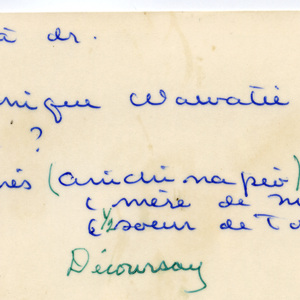 à dr.
nique Wawatie
?
nés (anichinapéo)
(, mère de m
(, 1/2 soeur de To
Décoursay